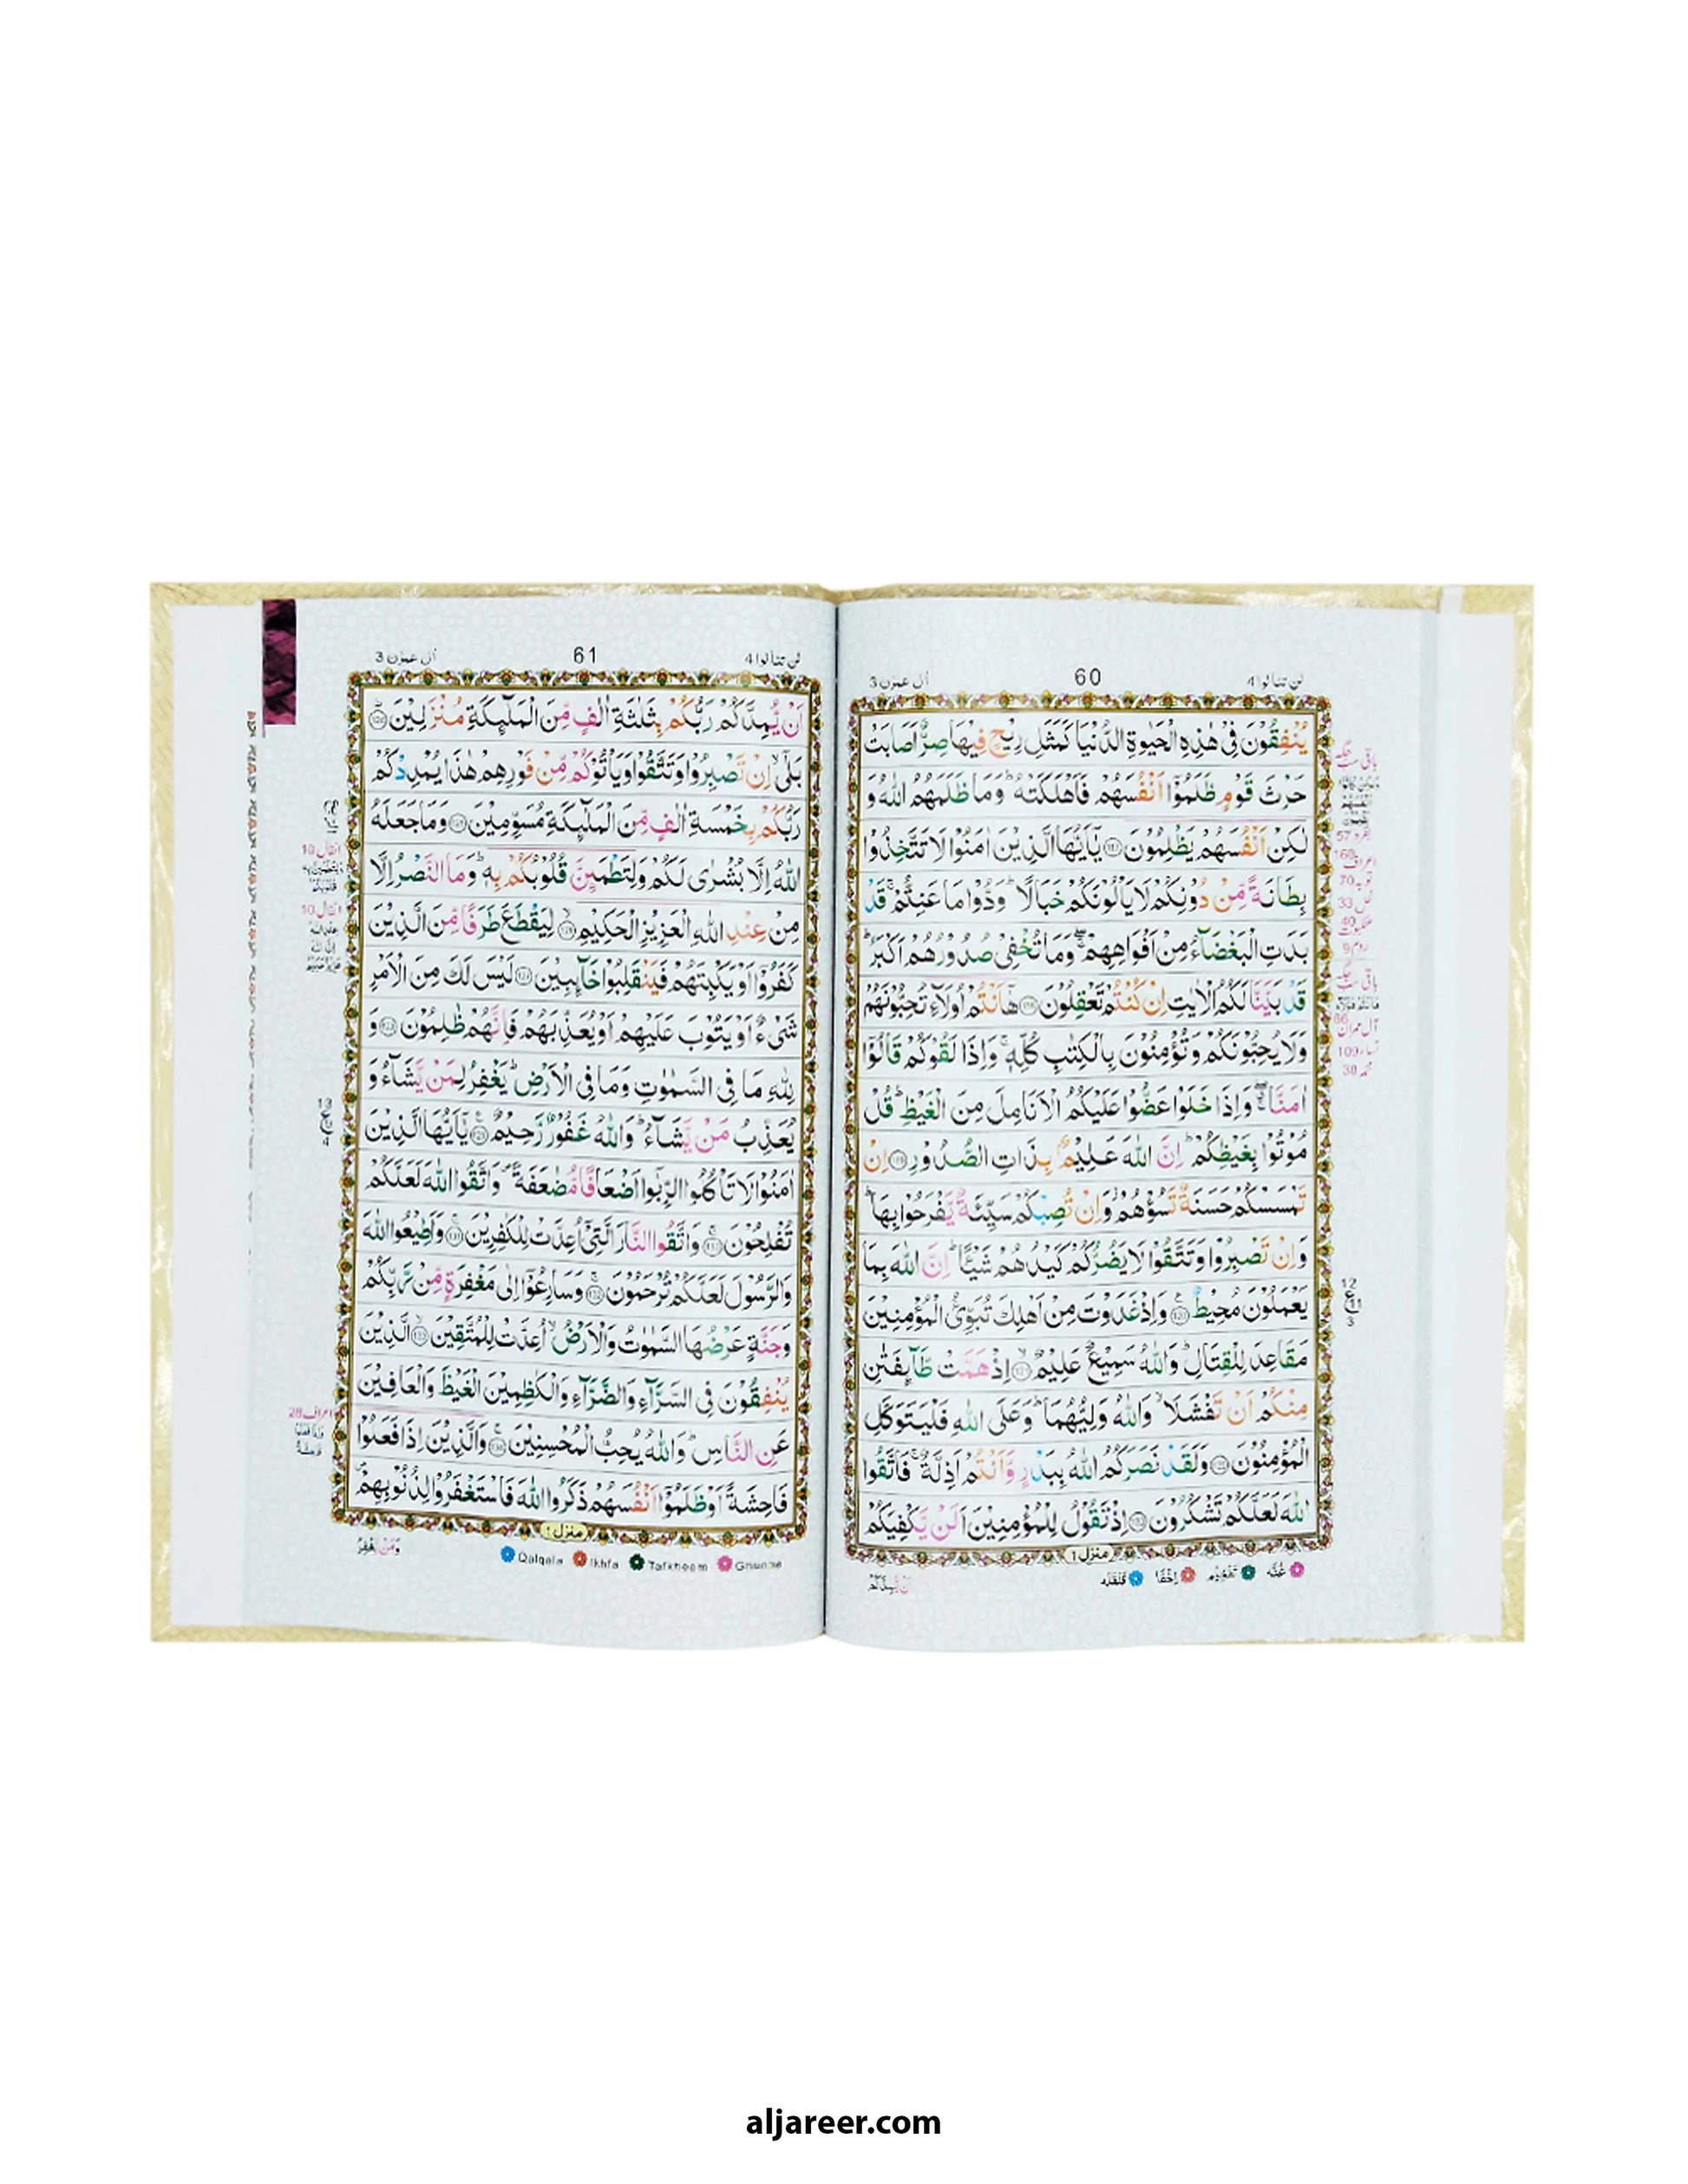 لن تنالوا 4
60
آل عمرٰن 3
يُنْفِقُوْنَ فِىْ هٰذِهِ الْحَيٰوةِ الدُّنْيَا كَمَثَلِ رِيْحٍ فِيْهَا صِرٌّ اَصَابَتْ
حَرْثَ قَوْمٍ ظَلَمُوْۤا اَنْفُسَهُمْ فَاَهْلَكَتْهُ ؕ وَمَا ظَلَمَهُمُ اللّٰهُ وَ
لٰكِنْ اَنْفُسَهُمْ يَظْلِمُوْنَ ﴿117﴾ يٰۤاَيُّهَا الَّذِيْنَ اٰمَنُوْا لَا تَتَّخِذُوْا
بِطَانَةً مِّنْ دُوْنِكُمْ لَا يَاْلُوْنَكُمْ خَبَالًا ؕ وَدُّوْا مَا عَنِتُّمْ ۚ قَدْ
بَدَتِ الْبَغْضَآءُ مِنْ اَفْوَاهِهِمْ ۖۚ وَمَا تُخْفِىْ صُدُوْرُهُمْ اَكْبَرُ ؕ
قَدْ بَيَّنَّا لَكُمُ الْاٰيٰتِ اِنْ كُنْتُمْ تَعْقِلُوْنَ ﴿118﴾ هٰۤاَنْتُمْ اُولَآءِ تُحِبُّوْنَهُمْ
وَلَا يُحِبُّوْنَكُمْ وَتُؤْمِنُوْنَ بِالْكِتٰبِ كُلِّهٖ ۚ وَاِذَا لَقُوْكُمْ قَالُوْۤا
اٰمَنَّا ۖۗ وَاِذَا خَلَوْا عَضُّوْا عَلَيْكُمُ الْاَنَامِلَ مِنَ الْغَيْظِ ؕ قُلْ
مُوْتُوْا بِغَيْظِكُمْ ؕ اِنَّ اللّٰهَ عَلِيْمٌۢ بِذَاتِ الصُّدُوْرِ ﴿119﴾ اِنْ
تَمْسَسْكُمْ حَسَنَةٌ تَسُؤْهُمْ وَاِنْ تُصِبْكُمْ سَيِّئَةٌ يَّفْرَحُوْا بِهَا ؕ
وَاِنْ تَصْبِرُوْا وَتَتَّقُوْا لَا يَضُرُّكُمْ كَيْدُهُمْ شَيْـًٔا ؕ اِنَّ اللّٰهَ بِمَا
يَعْمَلُوْنَ مُحِيْطٌ ﴿120﴾ وَاِذْ غَدَوْتَ مِنْ اَهْلِكَ تُبَوِّئُ الْمُؤْمِنِيْنَ
مَقَاعِدَ لِلْقِتَالِ ؕ وَاللّٰهُ سَمِيْعٌ عَلِيْمٌ ﴿121﴾ اِذْ هَمَّتْ طَّآئِفَتٰنِ
مِنْكُمْ اَنْ تَفْشَلَا ۙ وَاللّٰهُ وَلِيُّهُمَا ؕ وَعَلَى اللّٰهِ فَلْيَتَوَكَّلِ
الْمُؤْمِنُوْنَ ﴿122﴾ وَلَقَدْ نَصَرَكُمُ اللّٰهُ بِبَدْرٍ وَّاَنْتُمْ اَذِلَّةٌ ۚ فَاتَّقُوا
اللّٰهَ لَعَلَّكُمْ تَشْكُرُوْنَ ﴿123﴾ اِذْ تَقُوْلُ لِلْمُؤْمِنِيْنَ اَلَنْ يَّكْفِيَكُمْ
منزل ١
غُنَّه تَفْخِيْم اِخْفَا قَلْقَلَه
لن تنالوا 4
61
آل عمرٰن 3
اَنْ يُّمِدَّكُمْ رَبُّكُمْ بِثَلٰثَةِ اٰلٰفٍ مِّنَ الْمَلٰٓئِكَةِ مُنْزَلِيْنَ ﴿124﴾
بَلٰٓى ۙ اِنْ تَصْبِرُوْا وَتَتَّقُوْا وَيَاْتُوْكُمْ مِّنْ فَوْرِهِمْ هٰذَا يُمْدِدْكُمْ
رَبُّكُمْ بِخَمْسَةِ اٰلٰفٍ مِّنَ الْمَلٰٓئِكَةِ مُسَوِّمِيْنَ ﴿125﴾ وَمَا جَعَلَهُ
اللّٰهُ اِلَّا بُشْرٰى لَكُمْ وَلِتَطْمَئِنَّ قُلُوْبُكُمْ بِهٖ ؕ وَمَا النَّصْرُ اِلَّا
مِنْ عِنْدِ اللّٰهِ الْعَزِيْزِ الْحَكِيْمِ ﴿126﴾ لِيَقْطَعَ طَرَفًا مِّنَ الَّذِيْنَ
كَفَرُوْۤا اَوْ يَكْبِتَهُمْ فَيَنْقَلِبُوْا خَآئِبِيْنَ ﴿127﴾ لَيْسَ لَكَ مِنَ الْاَمْرِ
شَىْءٌ اَوْ يَتُوْبَ عَلَيْهِمْ اَوْ يُعَذِّبَهُمْ فَاِنَّهُمْ ظٰلِمُوْنَ ﴿128﴾ وَ
لِلّٰهِ مَا فِى السَّمٰوٰتِ وَمَا فِى الْاَرْضِ ؕ يَغْفِرُ لِمَنْ يَّشَآءُ وَ
يُعَذِّبُ مَنْ يَّشَآءُ ؕ وَاللّٰهُ غَفُوْرٌ رَّحِيْمٌ ﴿129﴾ يٰۤاَيُّهَا الَّذِيْنَ
اٰمَنُوْا لَا تَاْكُلُوا الرِّبٰوٓا اَضْعَافًا مُّضٰعَفَةً ۖ وَّاتَّقُوا اللّٰهَ لَعَلَّكُمْ
تُفْلِحُوْنَ ﴿130﴾ وَاتَّقُوا النَّارَ الَّتِىْۤ اُعِدَّتْ لِلْكٰفِرِيْنَ ﴿131﴾ وَاَطِيْعُوا اللّٰهَ
وَالرَّسُوْلَ لَعَلَّكُمْ تُرْحَمُوْنَ ﴿132﴾ وَسَارِعُوْۤا اِلٰى مَغْفِرَةٍ مِّنْ رَّبِّكُمْ
وَجَنَّةٍ عَرْضُهَا السَّمٰوٰتُ وَالْاَرْضُ ۙ اُعِدَّتْ لِلْمُتَّقِيْنَ ﴿133﴾ الَّذِيْنَ
يُنْفِقُوْنَ فِى السَّرَّآءِ وَالضَّرَّآءِ وَالْكٰظِمِيْنَ الْغَيْظَ وَالْعَافِيْنَ
عَنِ النَّاسِ ؕ وَاللّٰهُ يُحِبُّ الْمُحْسِنِيْنَ ﴿134﴾ وَالَّذِيْنَ اِذَا فَعَلُوْا
فَاحِشَةً اَوْ ظَلَمُوْۤا اَنْفُسَهُمْ ذَكَرُوا اللّٰهَ فَاسْتَغْفَرُوْا لِذُنُوْبِهِمْ
منزل ١
Qalqala Ikhfa Tafkheem Ghunna
وَمَنْ يَّغْفِرُ
aljareer.com